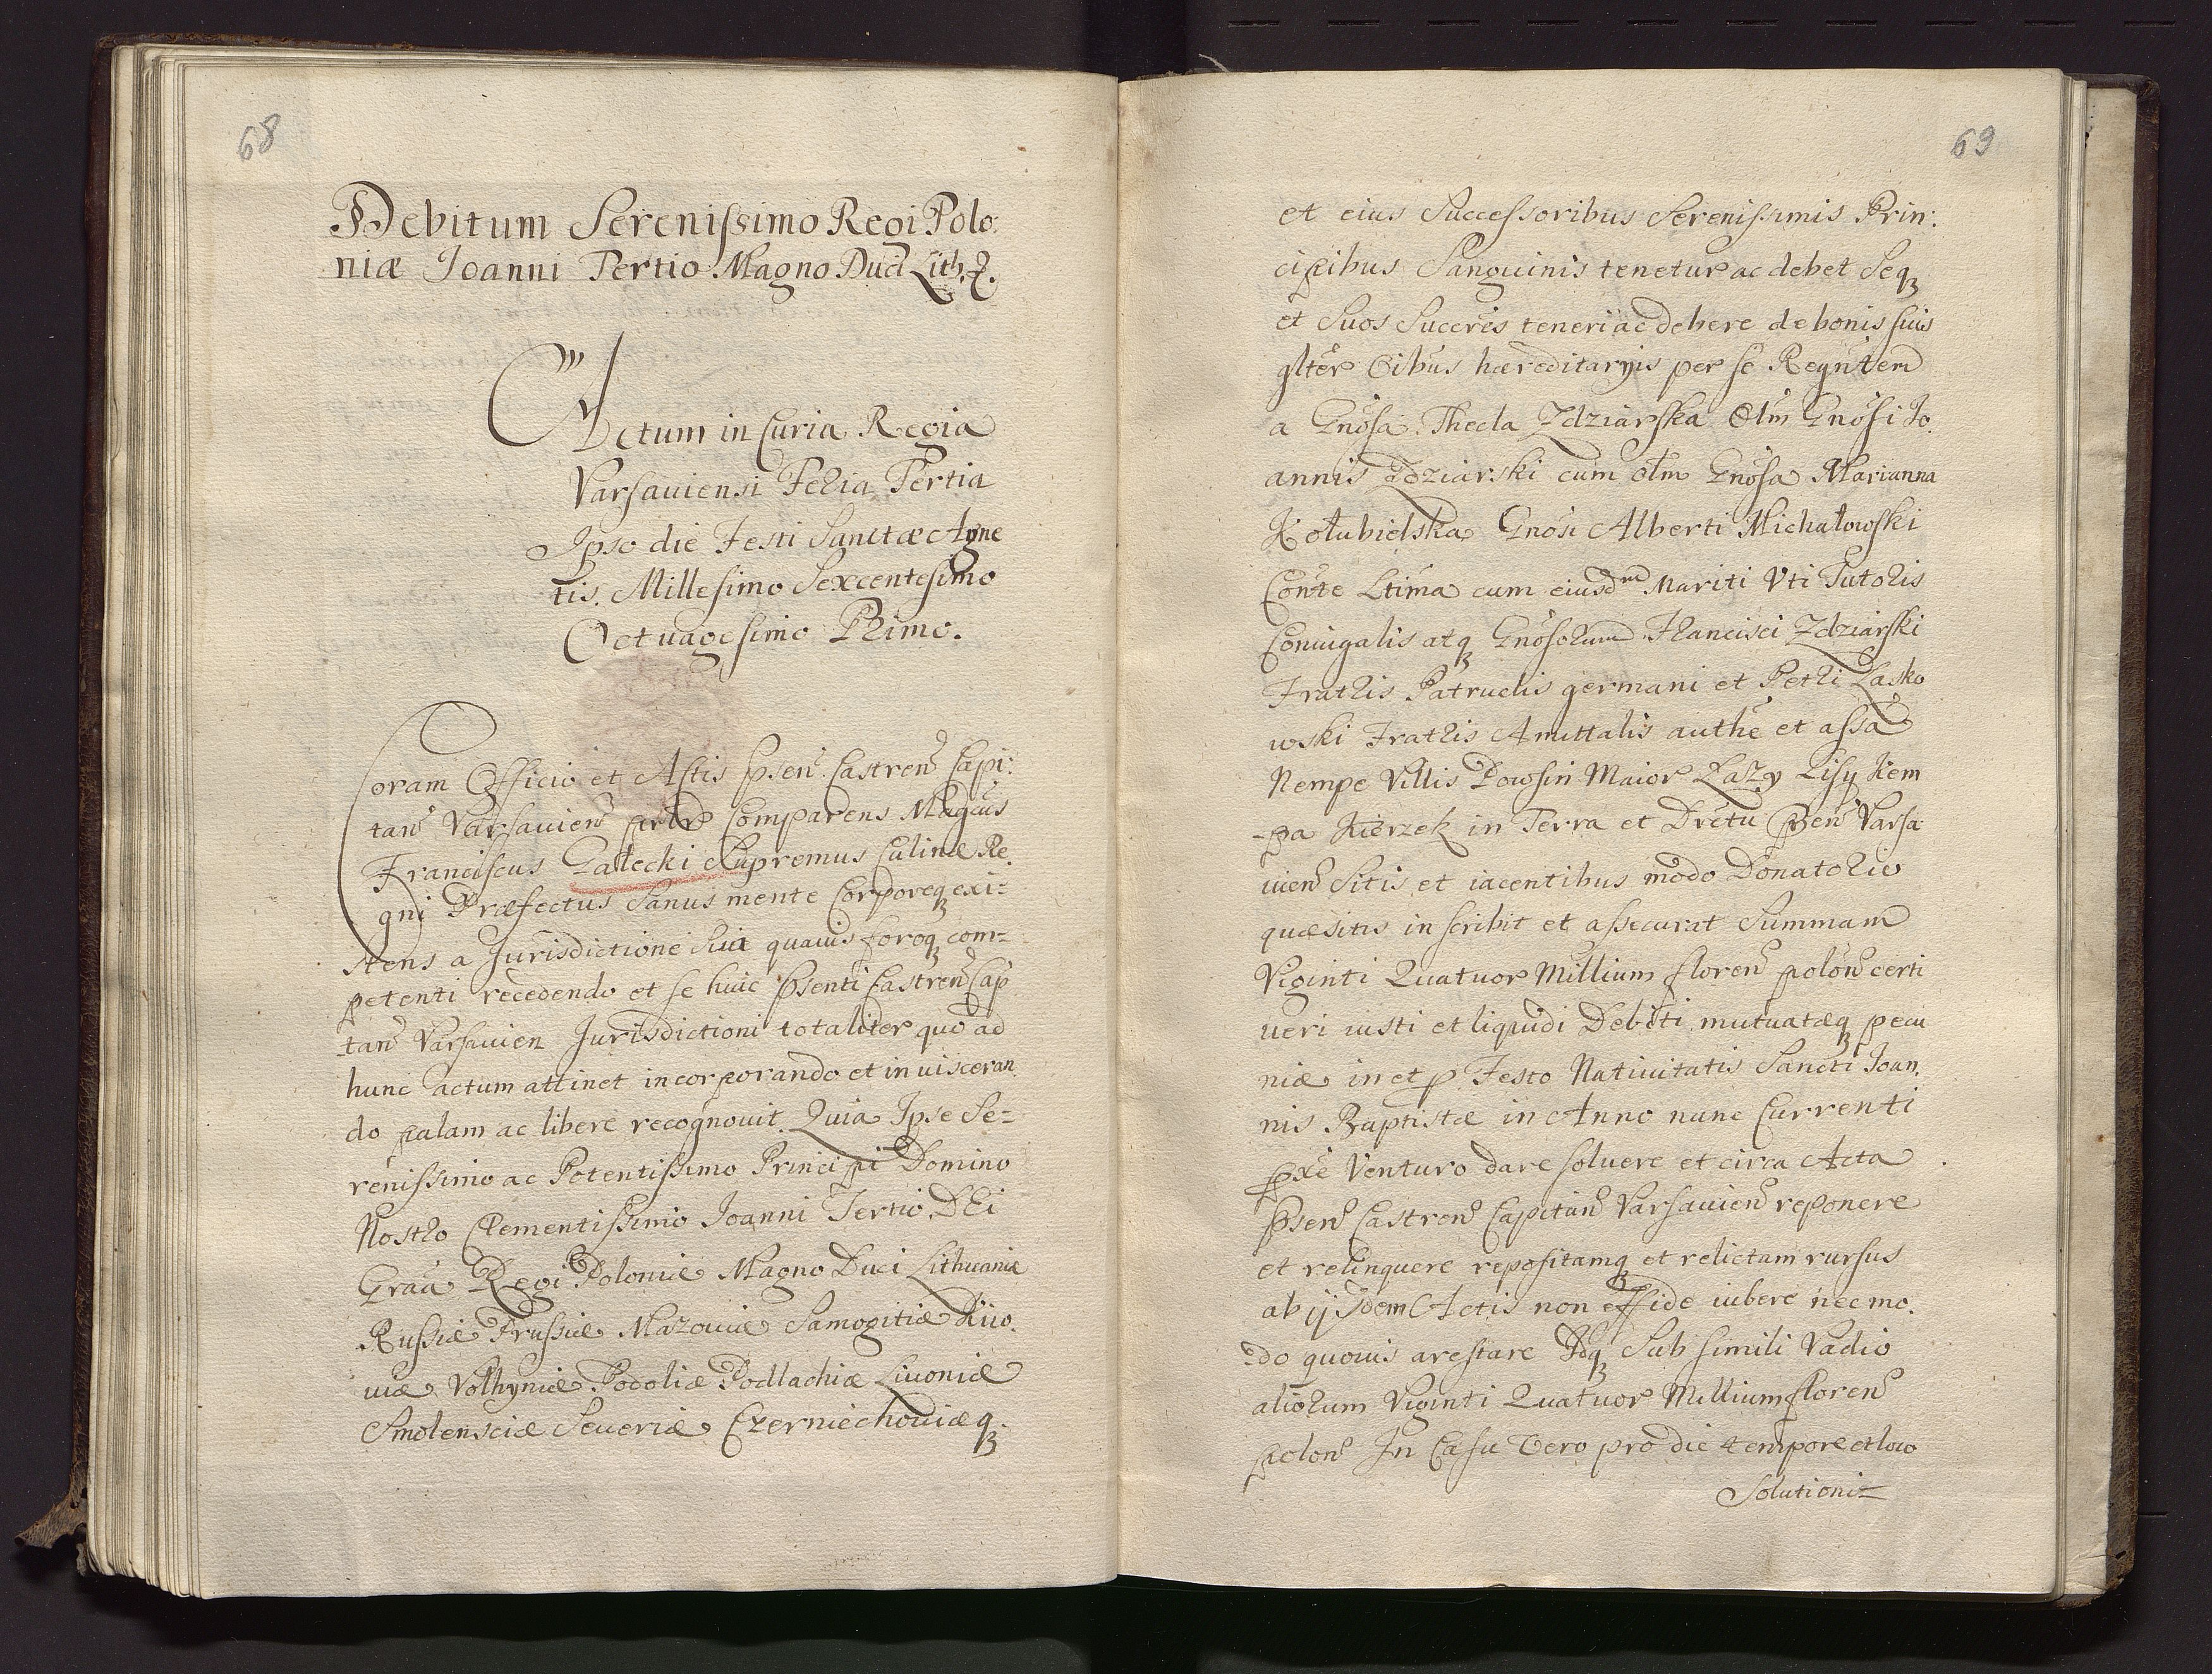 68
Debitum Serenissimo Regi Polo:
niæ Joanni Tertio Magno Duci Lith. &.
Actum in Curia Regia
Varsaviensi Feria Tertia
Ipso die Festi Sanctæ Agne
tis. Millesimo Sexcentesimo
Octuagesimo Primo.
Coram Officio et Actis Psen̄ Castren̄ Capi:
tan̄ Varsavien̄ prlr Comparens Mag̃cus
Franciscus Gałecki Supremus Culinæ Re.
gni Præfectus Sanus mente Corporeq exi=
stens a Jurisdictione sua quavis foroq com=
petenti recedendo et se huic Psenti Castren̄ Cap
tan̄ Varsavien Jurisdictioni totaliter quo ad
hunc actum attinet incorporando et invisceran.
do palam ac libere recognovit. Quia Ipse Se=
renissimo ac Potentissimo Principi Domino
Nostro Clementissimo Joanni Tertio DEi
Graã Regi Poloniæ Magno Duci Lithuaniæ
Russiæ Prussiæ Mazoviæ Samogitiæ Kiio.
viæ Volhyniæ Podoliæ Podlachiæ Livoniæ
Smolensciæ Severiæ Czerniechoviæq.
69
et eius Successoribus Serenissimis Prin:
cipibus Sanguinis tenetur ac debet Seq
et Suos Succrẽs teneri ac debere de bonis suis
gltẽr Oibus hæreditarijs per se Regnĩtem
a Gnõsa Thecla Zdziarska Olim Gnõsi Jo.
annis Zdziarski cum olm Gnõsa Marianna
Kołubielska Gnõsi Alberti Michałowski
Cõnte Ltĩma cum eiusdm Mariti Uti Tutoris
Coniugalis atq Gnõsorum Francisci Zdziarski
Fratris Patruelis germani et Petri Lasko
wski Fratris Amittalis authẽ et assã
Nempe Villis Dowsin Maior Łazy Lisy Kem
-pa Kierzek in Terra et Drẽtu Psen̄ Varsa
vien̄ Sitis et iacentibus modo Donatorio
quæsitis inscribit et assecurat Summam
Viginti Quatuor Millium floren̄ polon̄ certi
veri iusti et liquidi Debiti mutuatæq pecu
niæ in et p Festo Nativitatis Sancti Joan.
nis Baptistæ in Anno nunc Currenti
pxẽ Venturo dare solvere et circa Acta
Psen̄ Castren̄ Capitan̄ Varsavien̄ reponere
et relinquere repositamq et relictam rursus
ab ijsdem Actis non effide iubere nec mo.
do quovis arestare Idq Sub simili Vadio
aliorum Viginti Quatuor Millium floren̄
polon̄ In Casu Vero pro die tempore et loco
Solutioni=